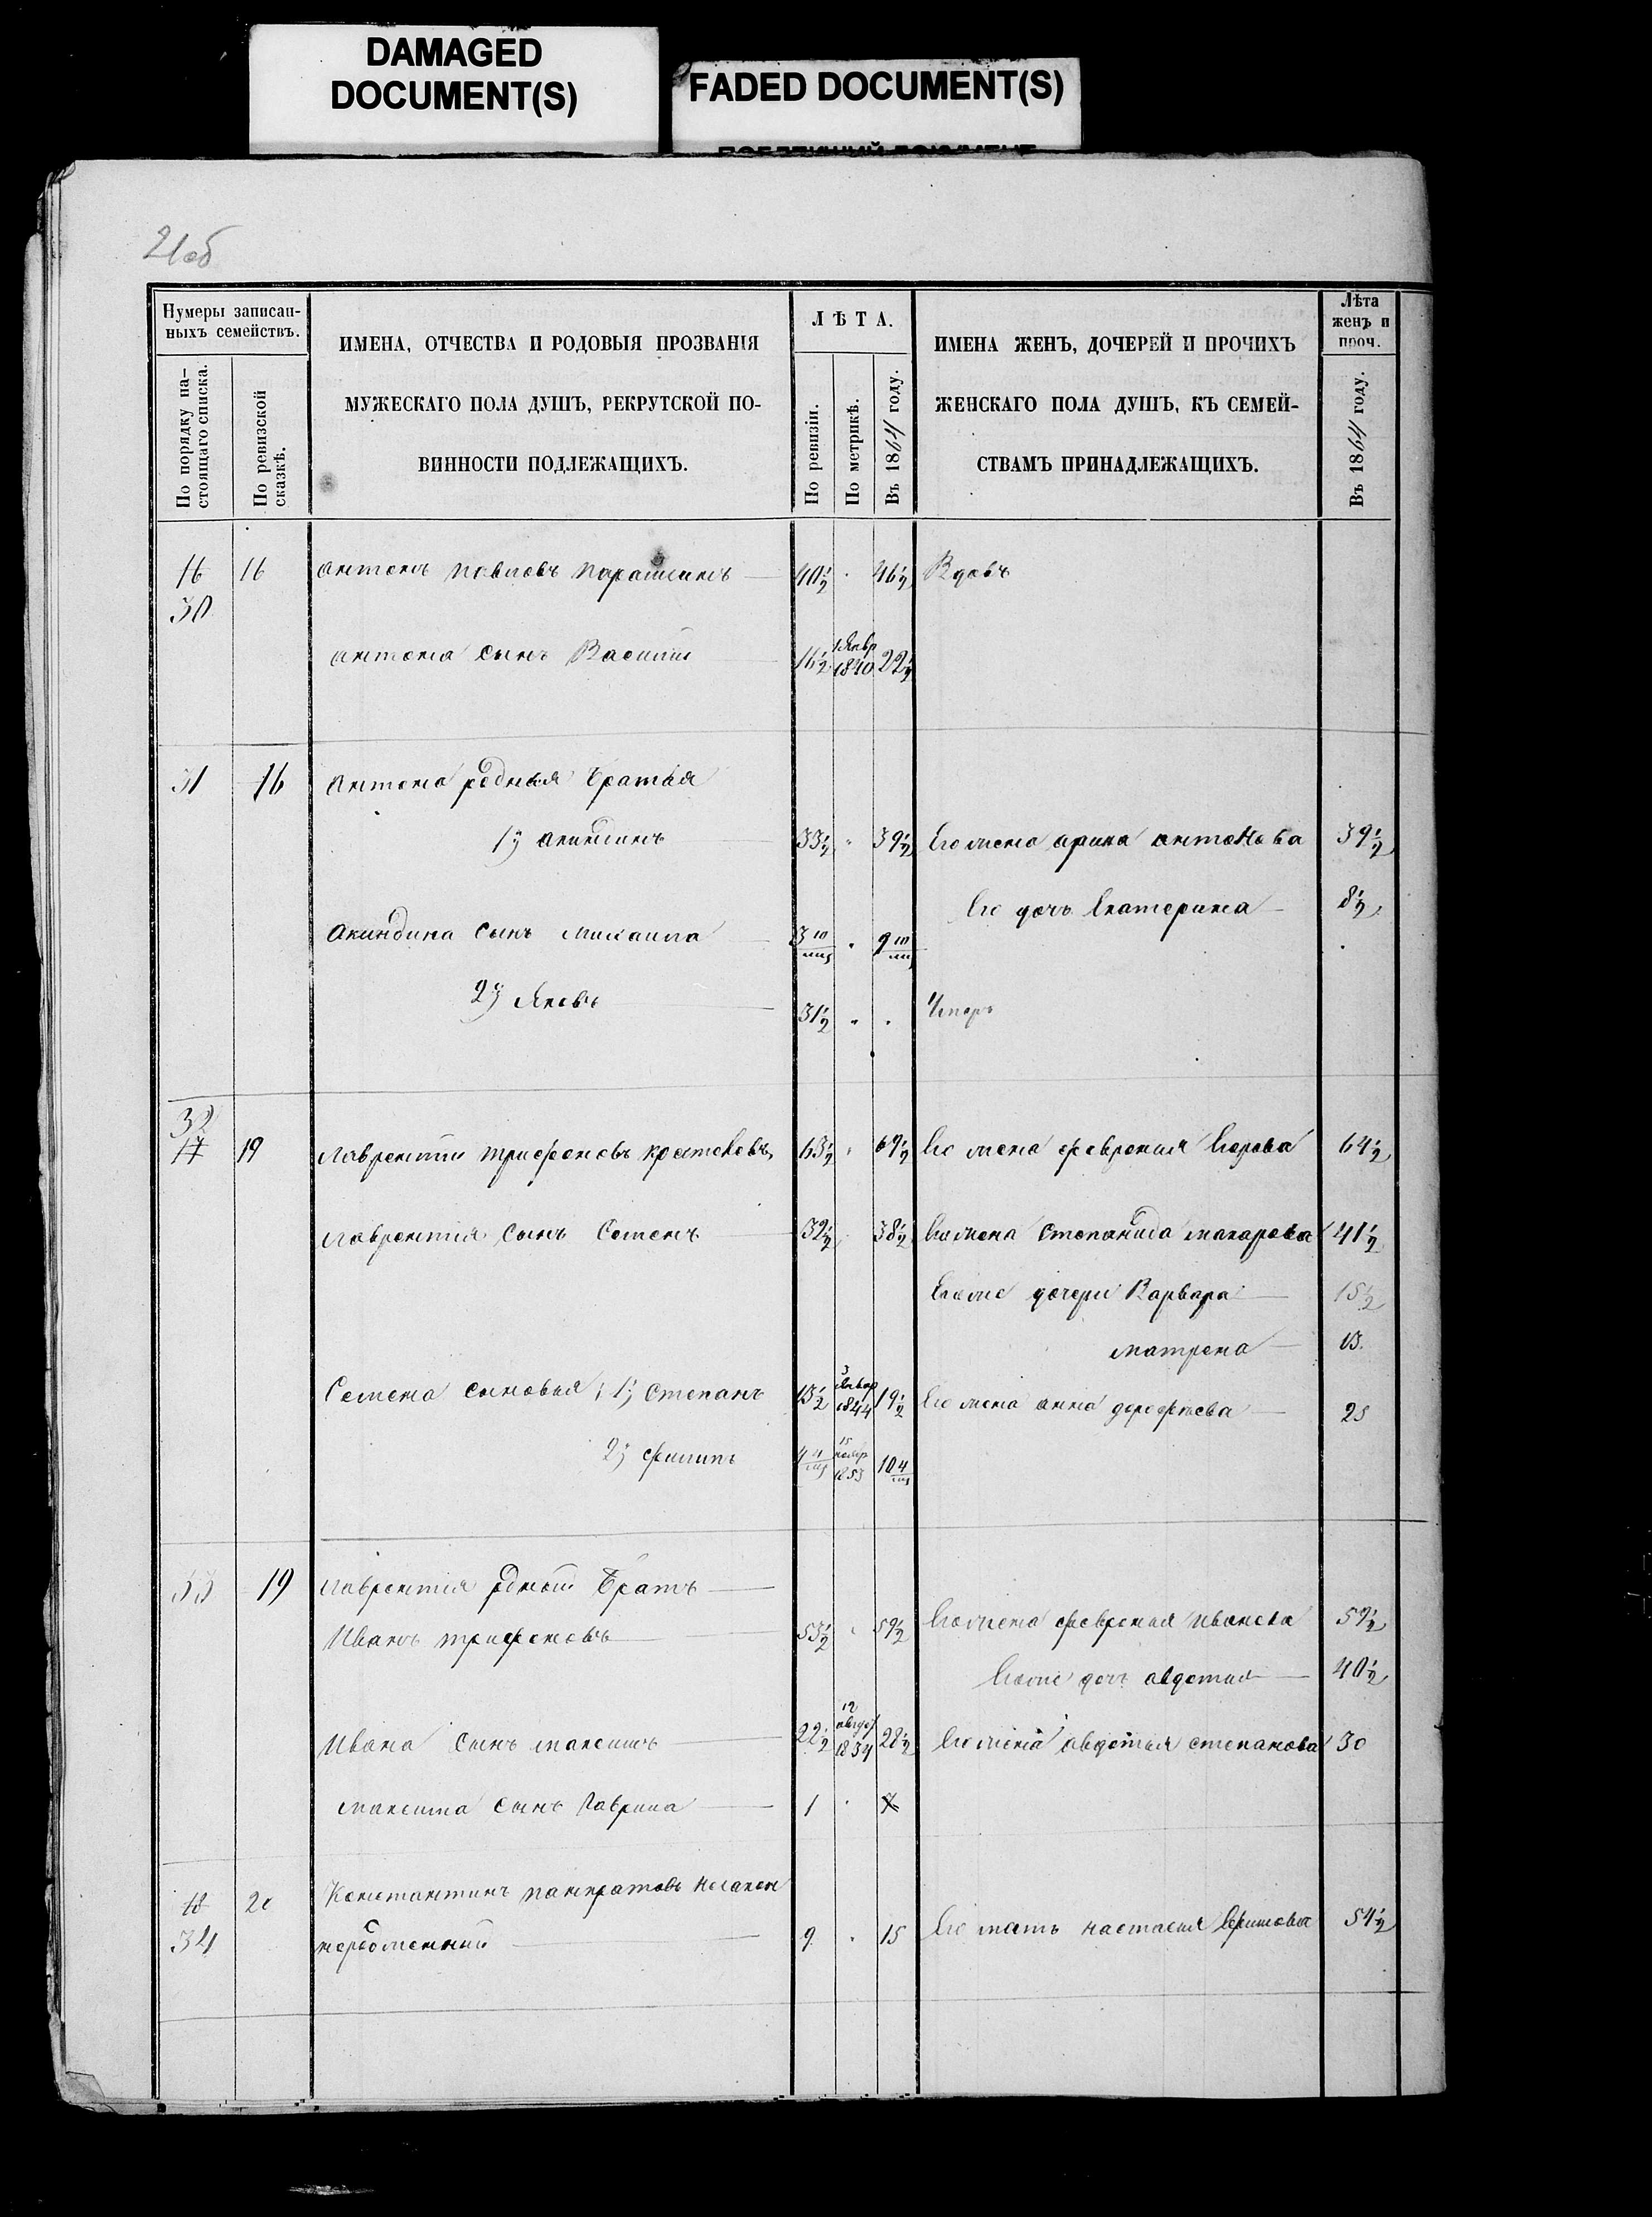 DAMAGED
DOCUMENT(S)
FADED DOCUMENT(S)
21об
Нумеры записан-
ныхъ семействъ.
По порядку на-
стоящаго списка.
По ревизской
сказкѣ.
ИМЕНА, ОТЧЕСТВА И РОДОВЫЯ ПРОЗВАНІЯ
МУЖЕСКАГО ПОЛА ДУШЪ, РЕКРУТСКОЙ ПО-
ВИННОСТИ ПОДЛЕЖАЩИХЪ.
ЛѢТА.
По ревизіи.
По метрикѣ.
Въ 1864 году.
ИМЕНА ЖЕНЪ, ДОЧЕРЕЙ И ПРОЧИХЪ
ЖЕНСКАГО ПОЛА ДУШЪ, КЪ СЕМЕЙ-
СТВАМЪ ПРИНАДЛЕЖАЩИХЪ.
Лѣта
женъ и
проч.
Въ 1864 году.
16 16 антонъ павловъ 40½ 46½ Вдовъ
30
антона сынъ Василии 16½ 1 Янвр 1840 22½
31 16 Антона родныя братья
1й акиндинъ 33½ " 39½ Его жена арина антонова 39½
Его дочь Екатерина 8½
Акиндина сынъ михаила 3 10 мцъ " 9 10 мцъ
2й Яковъ 31½ " " Умеръ
32
17 19 лаврентии трифоновъ 63½ " 69½ Его жена февронья Егорова 64½
лаврентия сынъ Семенъ 32½ 38½ Его жена степанида макарова 41½
Его же дочери Варвара 15½
матрена 13
Семена сыновья; 1й Степанъ 13½ 3 Январ 1844 19½ Его жена анна дорофѣева 25
2й филипъ 4 4 мцъ 15 нояб 1853 10 4 мцъ
33 19 лаврентия родной братъ
Иванъ трифоновъ 53½ " 59½ Его жена февронья иванова 59½
Его же дочь авдотья 40½
Ивана сынъ максимъ 22½ 12 август 1834 28½ Его жена авдотья степанова 30
максима сынъ Гаврила 1 " 7
18 20 Константинъ панкратовъ незакон
норожденный 9 " 15 Его мать настасия 54½
34